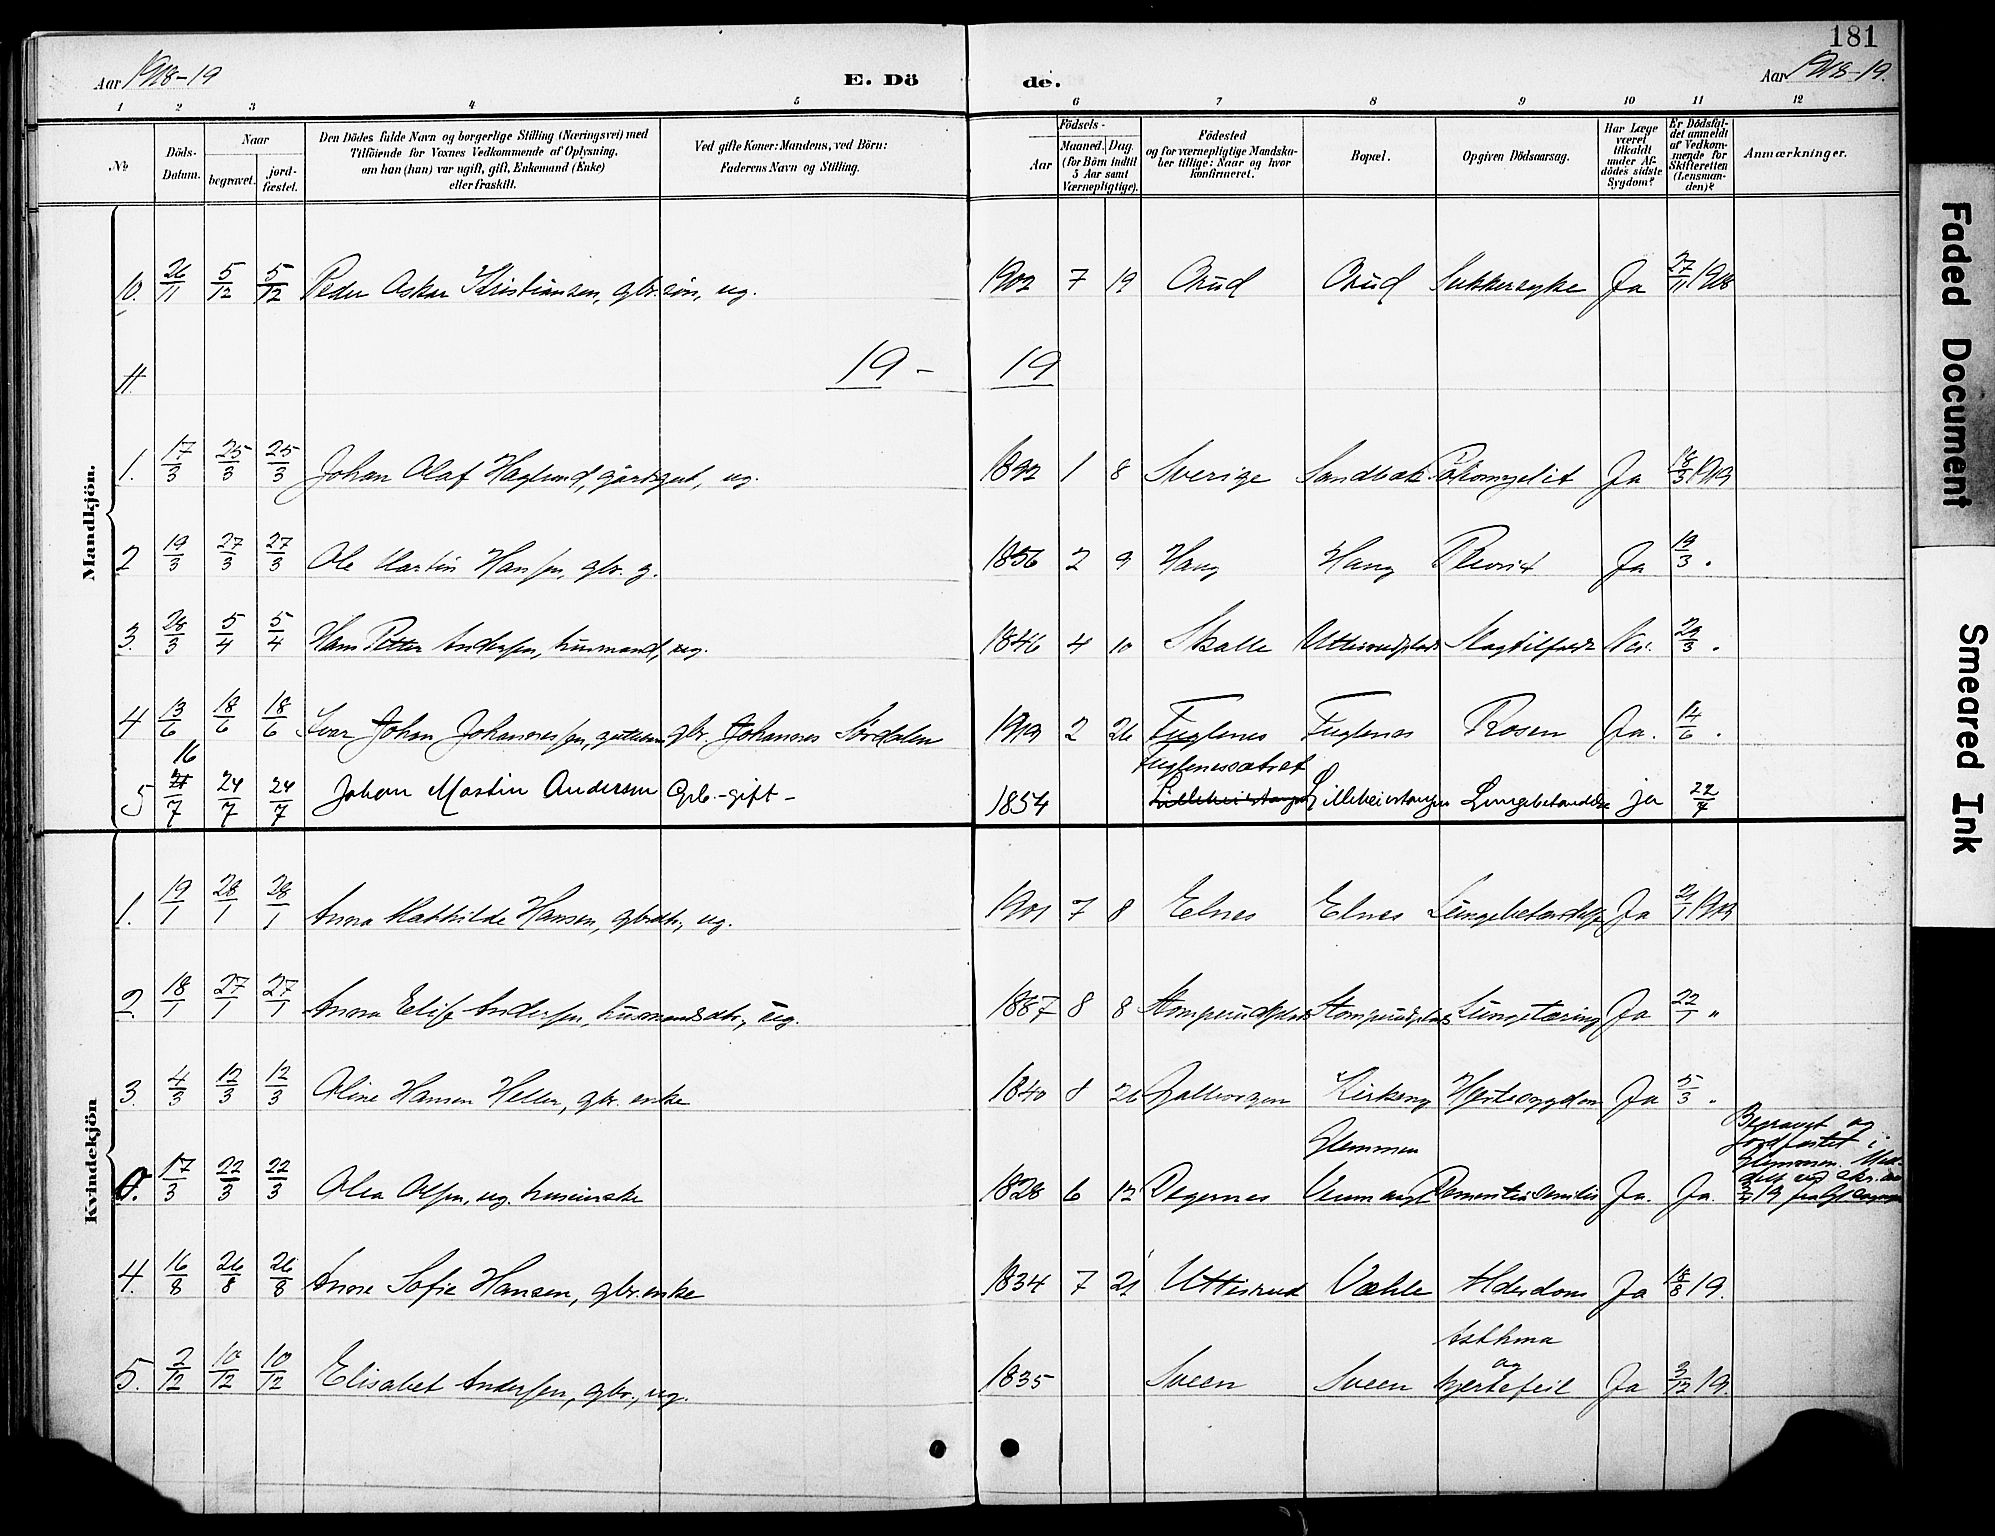 181
Aar 1918-19
E. Dö
de.
Aar 1918-19.
1 2 3 4 5 6 7 8 9 10 11 12
No
Döds-Datum.
Naar
begravet.
jord-fæstet.
Den Dödes fulde Navn og borgerlige Stilling (Næringsvei) med
Tilföiende for Voxnes Vedkommende af Oplysning,
om han (hun) var ugift, gift, Enkemand (Enke)
eller fraskilt.
Ved gifte Koner: Mandens, ved Börn:
Faderens Navn og Stilling.
Födsels-
Aar
Maaned. Dag.
(for Börn indtil
5 Aar samt
Værnepligtige).
Födested
og for værnepligtige Mandska-
ber tillige: Naar og hvor
konfirmeret.
Bopæl.
Opgiven Dödsaarsag.
Har Læge
været
tilkaldt
under Af-
dödes sidste
Sygdom?
Er Dödsfal-
det anmeldt
af Vedkom-
mende for
Skifteretten
(Lensman-
den)?
Anmærkninger.
Mandkjön.
10. 26/11 5/12 5/12 Peder Oskar Kristiansen, gbr.sön, ug. 1902 7 19 Orud Orud Sukkersyke Ja 27/11 1918
11. 19 - 19
1. 17/3 25/3 25/3 Johan Olaf Haglund, gårdsgut, ug. 1892 1 8 Sverige Ja 18/3 1919
2 19/3 27/3 27/3 Ole Martin Hansen, gbr. g. 1856 2 9 Haug Haug Plevrit Ja 19/3 "
3. 28/3 5/4 5/4 Hans Petter Andersen, husmand, ug. 1846 4 10 Skalle Slagtilfælde Nei. 29/3 "
4 13/6 18/6 18/6 Ivar Johan Johannessen, gbr. Johannes Sørdalen 1919 2 26 Fuglenes Fuglenes Rosen Ja. 14/6 "
Fuglenesætret
5 16/7 24/7 24/7 Johan Martin Andersen Gbr.-gift- 1854 Lilleheiestangen Lungebetændelse ja 22/7
Kvindekjön
1. 19/1 28/1 28/1 Anna Mathilde Hansen, gbrdtr, ug. 1901 7 8 Elnes Elnes Lungebetændelse Ja 21/1 1919
2. 18/1 27/1 27/1 Anna Elise Andersen, husmandsdtr, ug. 1887 8 8 Stomperudplads Stomperudplads Lungetæring Ja 22/1 "
3. 4/3 12/3 12/3 Oline Hansen Heller, gbr. enke 1840 8 26 Kirkeng Hjertesygdom Ja 5/3 "
0. 17/3 22/3 22/3 Olea Olsen, ug. 1828 6 12 Degernes Glemmen Veumasyl Dementia senilis Ja. Ja. Begravet og jordfæstet i Glemmen.
4. 16/8 26/8 26/8 Anne Sofie Hansen, gbr.enke 1834 7 21 Uttisrud Væhle Alderdom Ja 18/8 19.
5. 2/12 10/12 10/12 Elisabet Andersen, gbr., ug. 1835 Sveen Sveen Asthma og hjertefeil Ja 3/12 19.
Faded Document
Smeared Ink